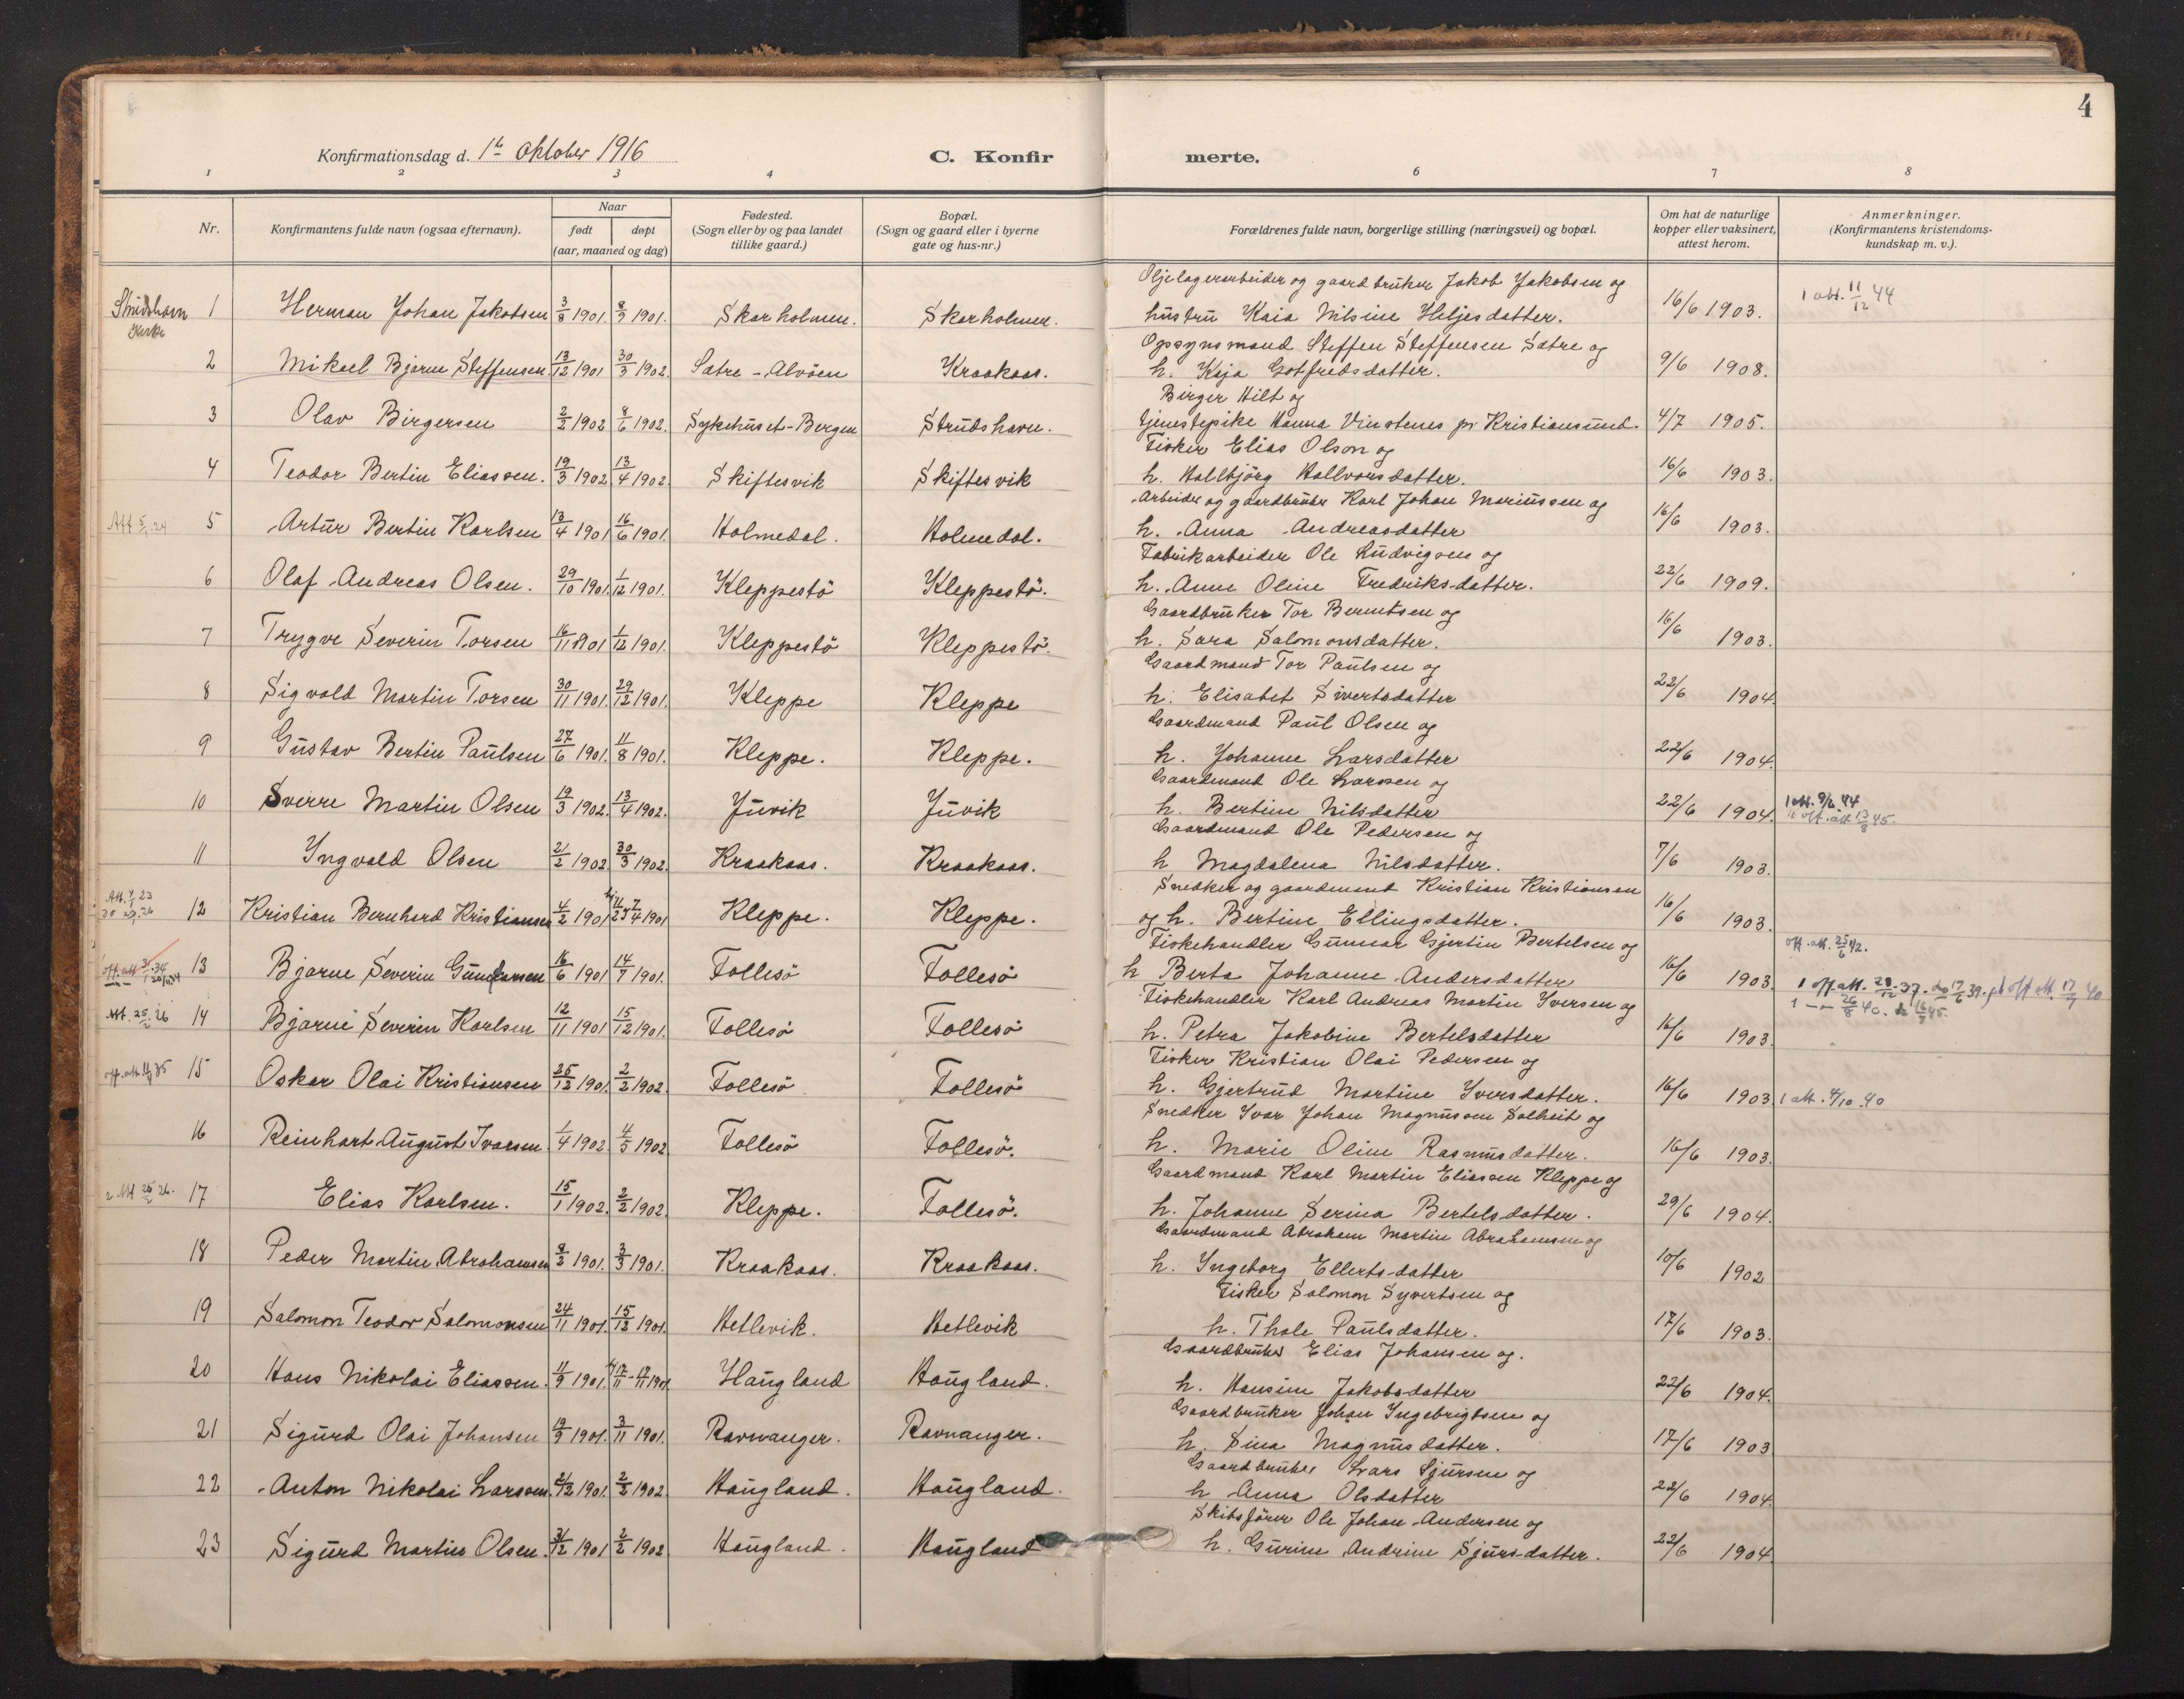 4
Konfirmationsdag d. 1ste Oktober 1916 C. Konfirmerte.
1 2 3 4 6 7 8
Nr. Konfirmantens fulde navn (ogsaa efternavn). Naar født døpt (aar, maaned og dag) Fødested. (Sogn eller by og paa landet tillike gaard.) Bopæl. (Sogn og gaard eller i byerne gate og hus-nr.) Forældrenes fulde navn, borgerlige stilling (næringsvei) og bopæl. Om hat de naturlige kopper eller vaksinert, attest herom. Anmerkninger. (Konfirmantens kristendomskundskap m. v.).
Oljelagerarbeider og gaardbruker Jakob Jakobsen og
Strudshavn Kirke 1 Herman Johan Jakobsen 3/8 1901. 8/9 1901. Skarholmen. Skarholmen. hustru Kaia Nilsine Heljesdatter. 16/6 1903. 1 att. 11/12 44
Opsynsmand Steffen Steffensen Sætre og
2 Mikael Bjarne Steffensen 13/12 1901 30/3 1902. Sætre - Alvöen Kraakaas. h. Kaja Gotfredsdatter. 9/6 1908.
Birger Hilt og
3 Olav Birgersen 2/2 1902 8/6 1902. Sykehuset-Bergen Strudshavn. tjenestepike Hanna Vinstenes pr Kristiansund. 4/7 1905.
Fisker Elias Olson og
4 Teodor Bertin Eliassen. 19/3 1902 13/4 1902. Skiftesvik Skiftesvik h. Hallbjörg Hallvorsdatter. 16/6 1903.
Arbeider og gaardbruker Karl Johan Mariussen og
Att 5/ 24 5 Artur Bertin Karlsen 13/4 1901 16/6 1901. Holmedal. Holmedal. h. Anna Andreasdatter 16/6 1903.
Fabrikarbeider Ole Ludvigsen og
6 Olaf Andreas Olsen. 29/10 1901. 1/12 1901. Kleppestö Kleppestö. h. Anne Oline Fredriksdatter. 22/6 1909.
Gaardbruker Tor Berntsen og
7 Trygve Severin Torsen 16/11 1901 1/12 1901. Kleppestö Kleppestö. h. Sara Salomonsdatter. 16/6 1903.
Gaardmand Tor Paulsen og
8 Sigvald Martin Torsen 30/11 1901. 29/12 1901. Kleppe Kleppe h. Elisabet Sivertsdatter 22/6 1904.
Gaardmand Paul Olsen og
9 Gustav Bertin Paulsen 27/6 1901. 11/8 1901. Kleppe. Kleppe. h. Johanne Larsdatter 22/6 1904.
Gaardmand Ole Larsen og
10 Sverre Martin Olsen 19/3 1902. 13/4 1902. Juvik Juvik h. Bertine Nilsdatter 22/6 1904. 1 att. 9/6 44
off. att 13/8 45.
Gaardmand Ole Pedersen og
11 Ingvald Olsen 21/2 1902. 30/3 1902. Kraakaas. Kraakaas. h Magdalena Nilsdatter. 7/6 1903.
Snedker og gaardmand Kristian Kristiansen
12 Kristian Bernhard Kristiansen 4/2 1901 7/4 1901 Kleppe. Kleppe. og h. Bertine Ellingsdatter. 16/6 1903.
Fiskehandler Gunnar Gjertin Bertelsen og off. att. 25/6 42.
13 Bjarne Severin Gunnarsen 16/6 1901 14/7 1901. Follesö Follesö h Berta Johanne Andersdatter 16/6 1903. 1 off. att. 28/12 37. do 17/6 39. off att. 17/9 40
Fiskehandler Karl Andreas Martin Iversen og 1 — 26/8 40.
Att. 25/2 26 14 Bjarne Severin Karlsen 12/11 1901 15/12 1901. Follesö Follesö h. Petra Jakobine Bertelsdatter 16/6 1903.
Fisker Kristian Olai Pedersen og
off. att. 35 15 Oskar Olai Kristiansen 25/12 1901. 2/2 1902. Follesö Follesö h. Gjertrud Martine Iversdatter. 16/6 1903 1 att. 4/10.40
Snedker Ivar Johan Magnussen Solheit og
16 Reinhart August Ivarsen. 1/4 1902. 4/5 1902 Follesö Follesö. h. Marie Oline Rasmusdatter. 16/6 1903.
Gaardmand Karl Martin Eliassen Kleppe og
2 Att 25/2 26. 17 Elias Karlsen. 15/1 1902. 2/2 1902. Kleppe. Follesö. h. Johanne Serina Bertelsdatter. 29/6 1904.
Gaardmand Abraham Martin Abrahamsen og
18 Peder Martin Abrahamsen 8/2 1901. 3/3 1901. Kraakaas. Kraakaas. h. Ingeborg Ellerts-datter 10/6 1902
Fisker Salomon Syvertsen og
19 Salomon Teodor Salomonsen 24/11 1901. 15/12 1901. Hetlevik. Hetlevik h. Thale Paulsdatter. 17/6 1903.
Gaardbruker Elias Johansen og.
20 Hans Nikolai Eliassen. 11/9 1901. 17/11 1901. Haugland Haugland. h. Hansine Jakobsdatter 22/6 1904.
Gaardbruker Johan Ingebrigtsen og
21 Sigurd Olai Johansen 19/9 1901. 3/11 1901. Ravnanger. Ravnanger. h. Sina Magnusdatter. 17/6 1903
Gaardbruker Lars Sjursen og
22 Anton Nikolai Larssen. 21/12 1901. 2/2 1902. Haugland. Haugland. h Anna Olsdatter 22/6 1904.
Skibsförer Ole Johan Andersen og
23 Sigurd Martin Olsen. 31/12 1901 2/2 1902 Haugland. Haugland h. Gurine Andrine Sjurs-datter. 22/6 1904.